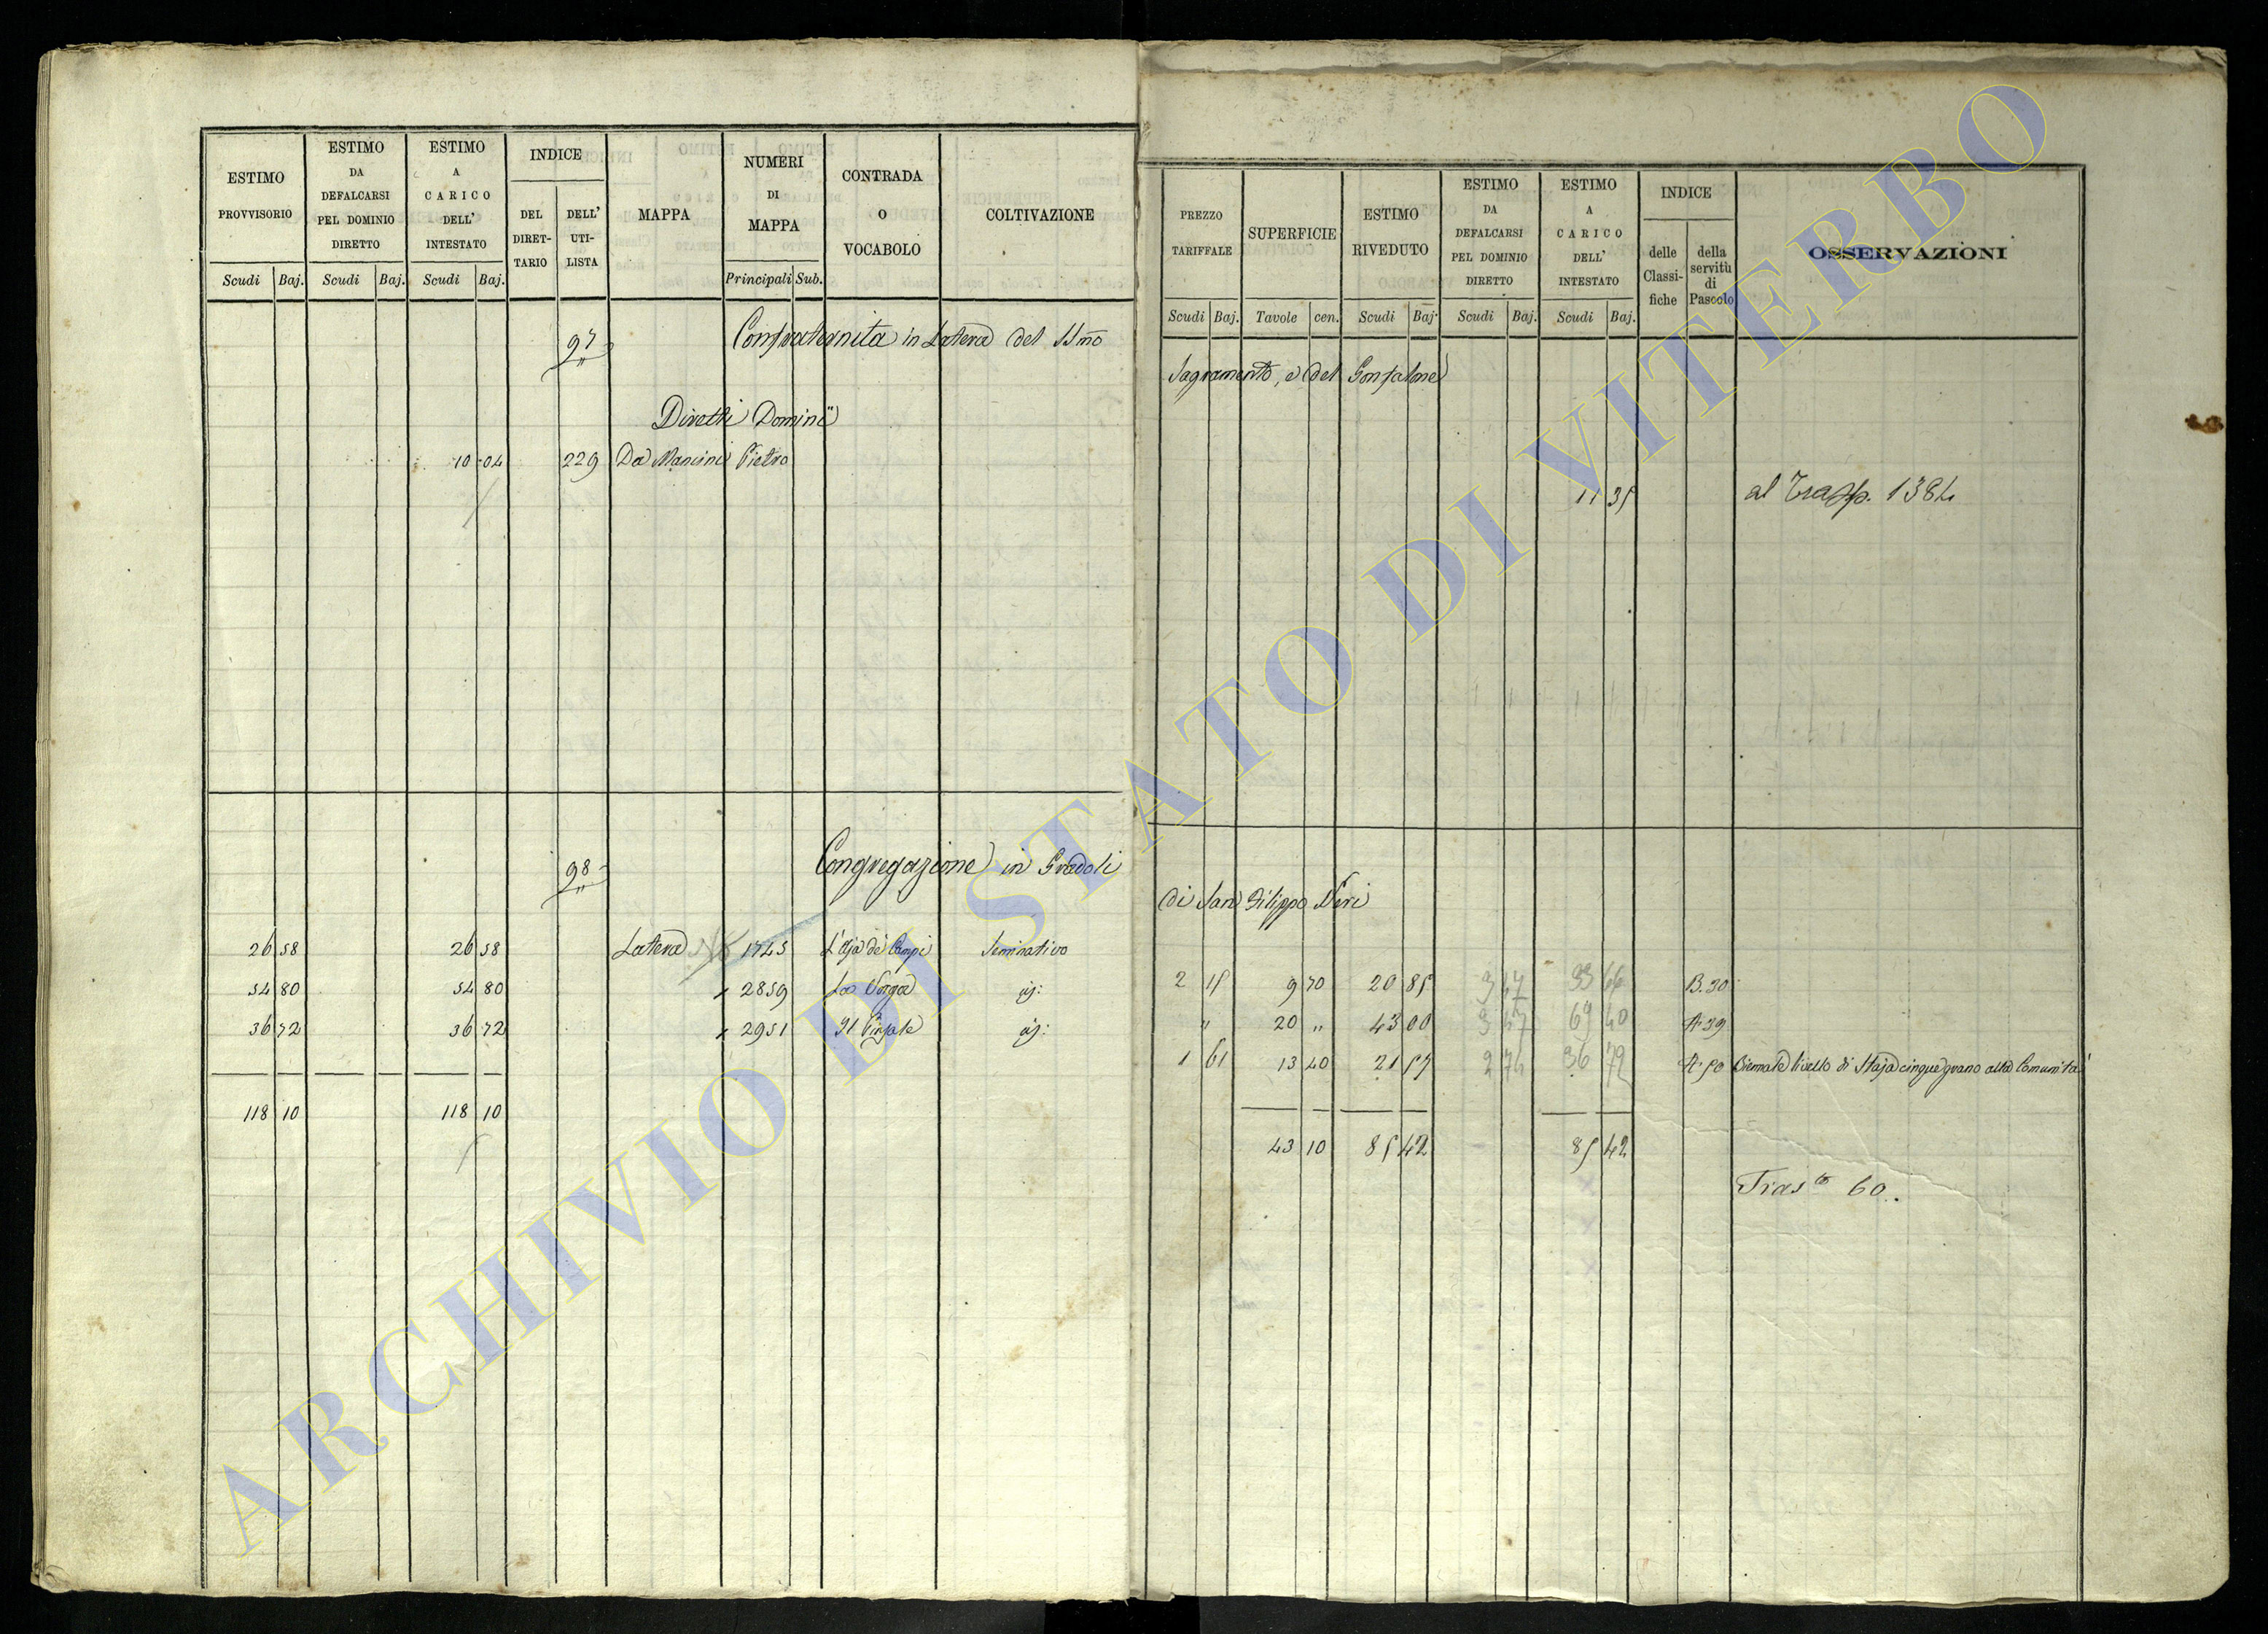 ESTIMO PROVVISORIO
ESTIMO DA DEFALCARSI PEL DOMINIO DIRETTO
ESTIMO A CARICO DELL' INTESTATO
INDICE
DEL DIRET-TARIO
DELL' UTI-LISTA
MAPPA
NUMERI DI MAPPA
CONTRADA O VOCABOLO
COLTIVAZIONE
Scudi Baj. Scudi Baj. Scudi Baj. Principali Sub.
97 Confraternita in Latera del SSmo
Diretti Dominii
10 04 229 Da Mancini Pietro
98 Congregazione in Gradoli
26 58 26 58 Latera 1745 L'Aja de Campi Seminativo
54 80 54 80 2859 La
36 72 36 72 2951 Il
118 10 118 10
PREZZO TARIFFALE
SUPERFICIE
ESTIMO RIVEDUTO
ESTIMO DA DEFALCARSI PEL DOMINIO DIRETTO
ESTIMO A CARICO DELL' INTESTATO
INDICE
delle Classi-fiche
della servitù di Pascolo
OSSERVAZIONI
Scudi Baj. Tavole cen. Scudi Baj. Scudi Baj. Scudi Baj.
Sagramento, e del Gonfalone
11 35 al Trasp. 1384
di San Filippo Neri
2 15 9 70 20 85 3 47 33 66 B. 30
" 20 " 43 00 3 47 69 40 A. 39
1 61 13 40 21 57 2 74 36 72 A. 50 Biennale livello di Staja cinque grano alla Comunità
43 10 85 42 85 42
Trasto 60
ARCHIVIO DI STATO DI VITERBO